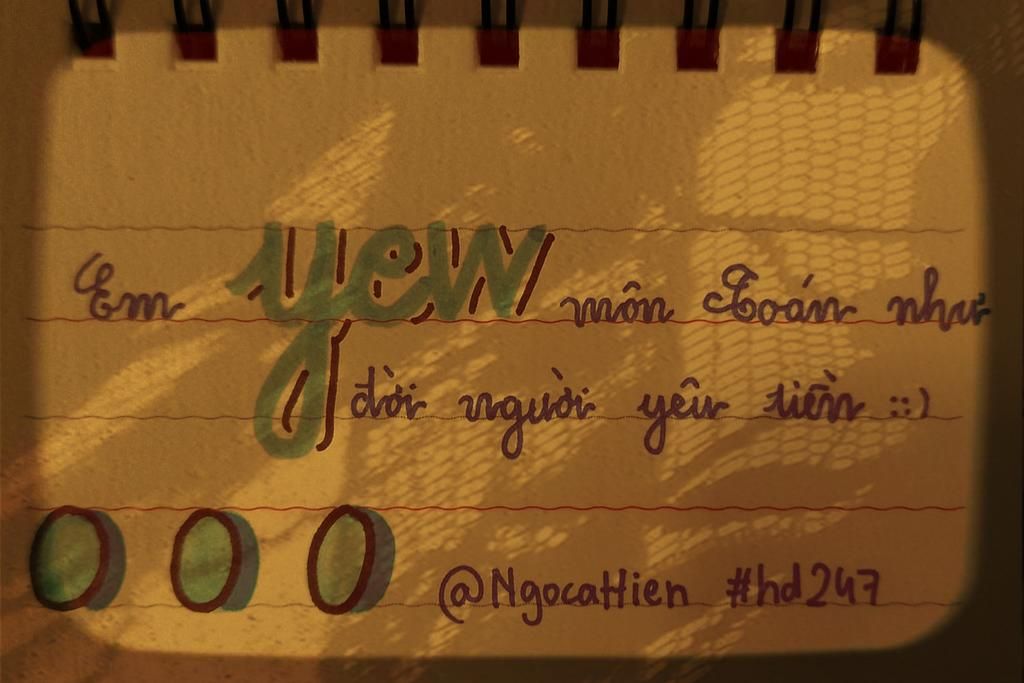 Em yew môn Toán như
đời người yêu tiền ::)
@NgocaHien #hd247